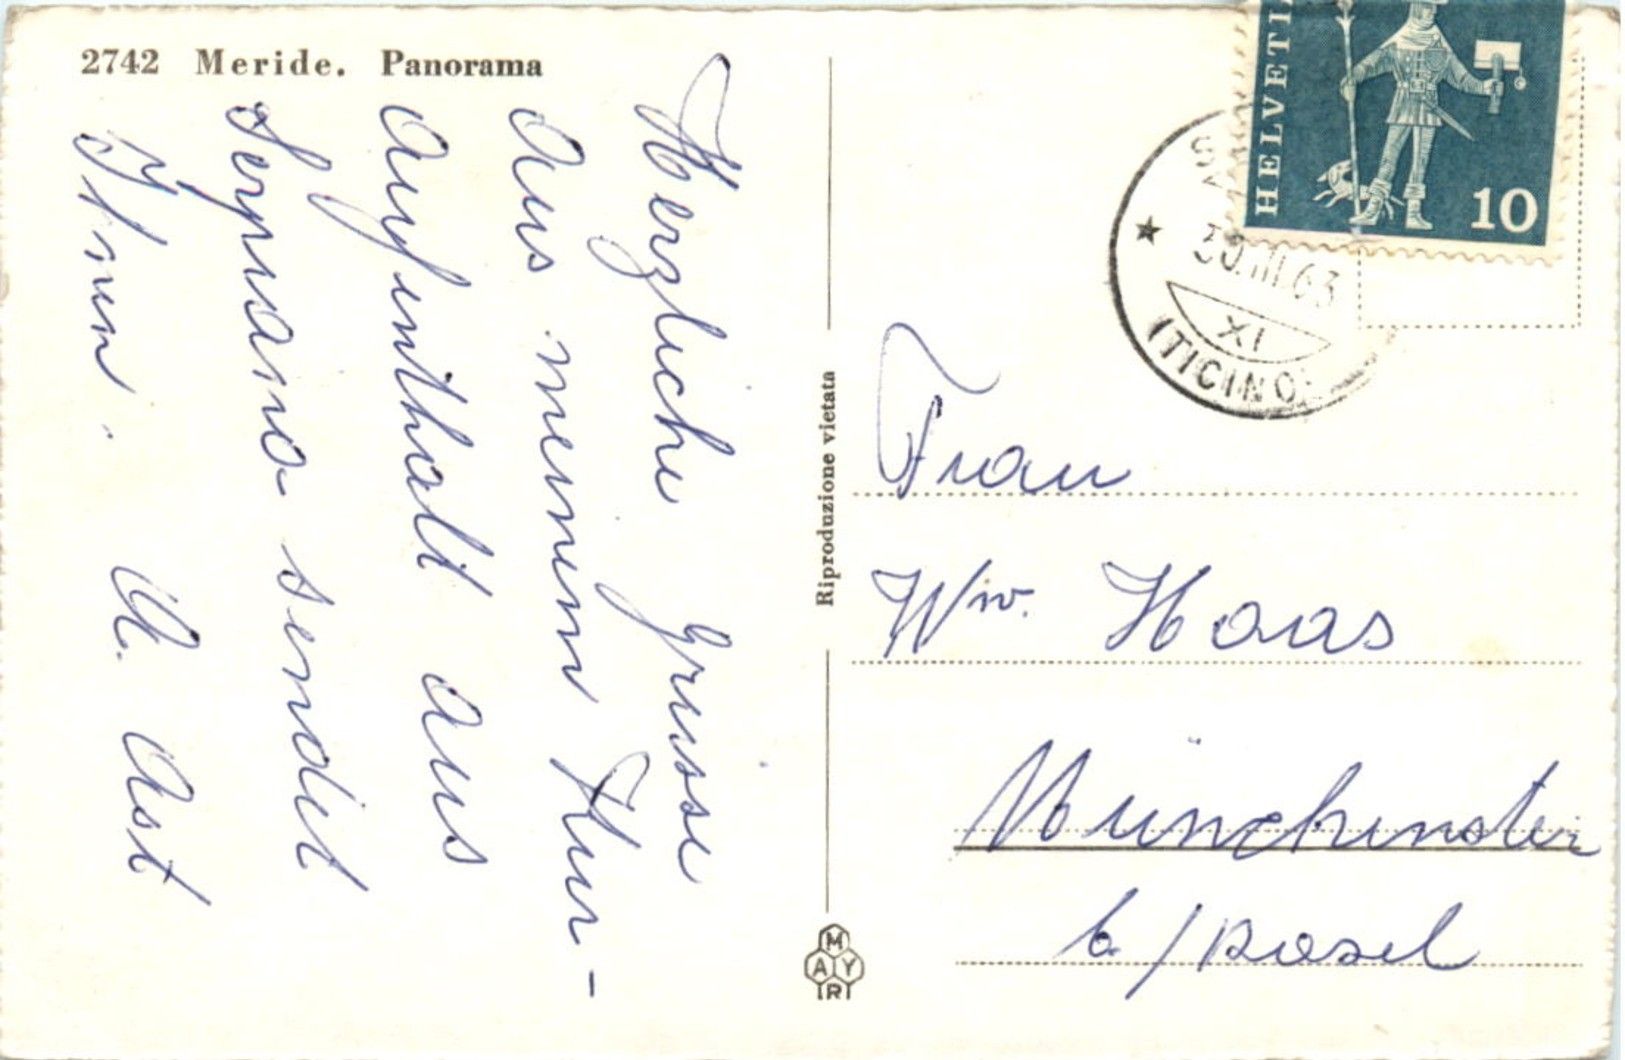 2742 Meride. Panorama
Herzliche Grüsse
Aus meinem Kur-
Aufenthalt aus
Serpiano sendet
Ihnen. M. Ast
Riproduzione vietata
MAYR
HELVETIA
10
30.III.63
XI
(TICINO)
Frau
Ww. Haas
Münchenstein
b/Basel